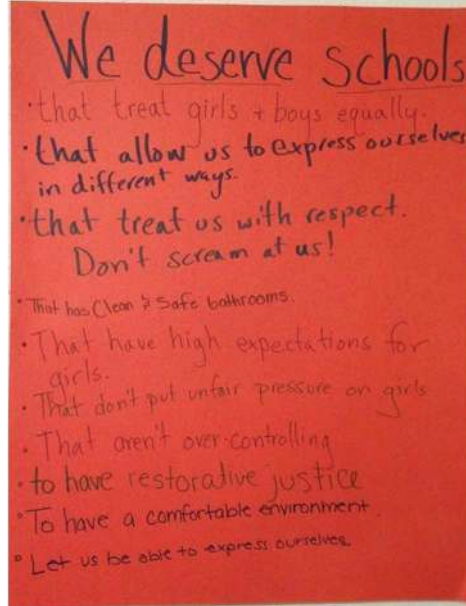 We deserve schools
• that treat girls + boys equally.
• that allow us to express ourselves
in different ways.
• that treat us with respect.
Don't scream at us!
• That has Clean & Safe bathrooms.
• That have high expectations for
girls.
• That don't put unfair pressure on girls
• That aren't over-controlling
• to have restorative justice
• To have a comfortable environment.
• Let us be able to express ourselves.